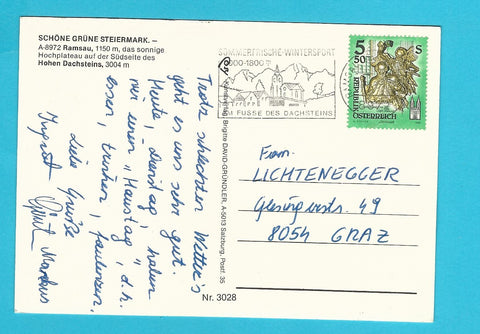 SCHÖNE GRÜNE STEIERMARK. –
A-8972 Ramsau, 1150 m, das sonnige
Hochplateau auf der Südseite des
Hohen Dachsteins, 3004 m
Trotz schlechten Wetters
geht es uns sehr gut.
Heute, Dienstag, haben
wir einen "Haustag", d.h.
essen, trinken, faulenzen,
Liebe Grüße
Ingrid
Markus
Brigitte DAVID-GRÜNDLER, A-5013 Salzburg, Postf. 35
SOMMERFRISCHE-WINTERSPORT
1000-1800 m
AM FUSSE DES DACHSTEINS
5 50 S
REPUBLIK
ÖSTERREICH
Fam.
LICHTENEGGER
49
8054 GRAZ
Nr. 3028